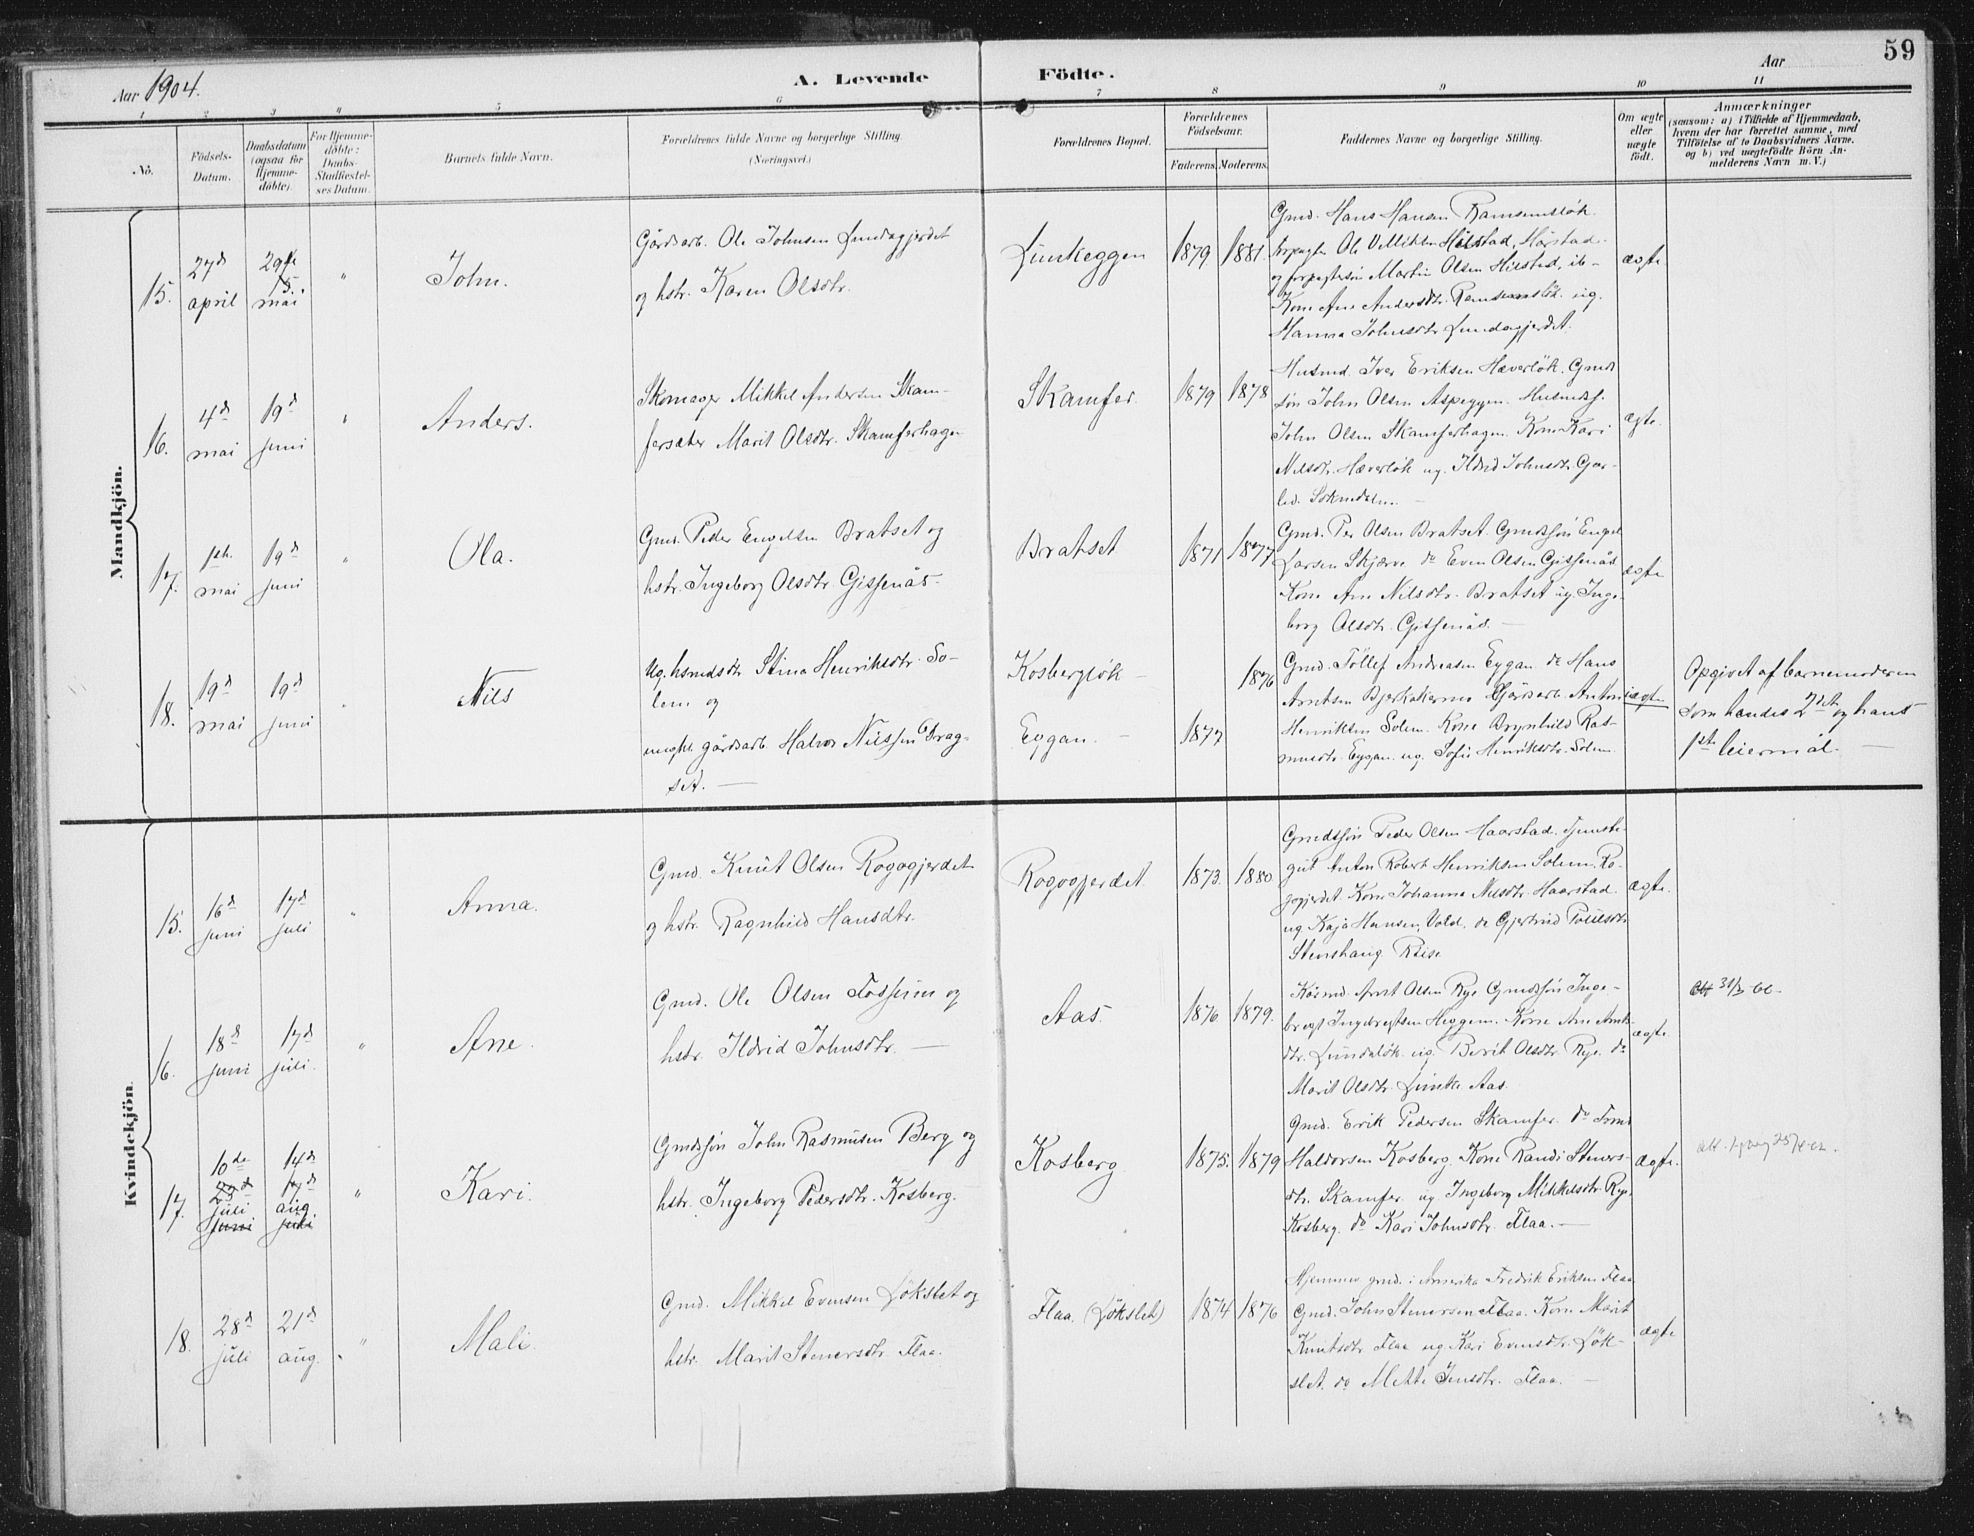 59
Aar 1904.
A. Levende Födte.
Aar
1 2 3 4 5 6 7 8 9 10 11
No.
Födsels-
Datum.
Daabsdatum
(ogsaa for
Hjemme-
döbte).
For Hjemme-
döbte:
Daabs-
Stadfæstel-
ses Datum.
Barnets fulde Navn.
Forældrenes fulde Navne og borgerlige Stilling.
(Næringsvei.)
Forældrenes Bopæl.
Forældrenes
Födselsaar.
Faderens. Moderens.
Faddernes Navne og borgerlige Stilling.
Om ægte
eller
uægte
födt.
Anmærkninger
(saasom: a) i Tilfælde af Hjemmedaab,
hvem der har forrettet samme, med
Tilföielse af to Daabsvidners Navne,
og b) ved uægtefödte Börn An-
melderens Navn m. V.)
Mandkjön.
15.
27d
april
29de
mai
"
John.
Gårdsarb. Ole Johnsen Lundagjerdet
og hstr. Karen Olsdtr.
Lünkeggen
1879
1881.
Gmd. Hans Hansen Ramsemsløk.
Ole Hilstad, Hårstad.
Martin Olsen Hilstad, ib-
Kone Ane Andersdtr. Ramsemsløk. ug.
Hanna Johnsdtr. Lundagjerdet.
ægte
16.
4d
mai
19d
juni
"
Anders.
Skomager Mikkel Andersen Skam-
fersæter Marit Olsdtr. Skamferhagen
Skamfer
1879
1878
Husmd Iver Eriksen Hæverløk. Gmds
søn John Olsen Aspeggen. Husmdsf.
John Olsen Skamferhagen. Kone Kari
Nilsdtr. Hæverløk ug. Ildrid Johnsdtr. Gar-
lid. Soknedalen. –
ægte.
17.
1ste
mai
19d
juni
"
Ola.
Gmd. Peder Engelsen Bratset og
hstr. Ingeborg Olsdtr. Gisnås.
Bratset
1871
1877
Gmd. Per Olsen Bratset. Gmdsøn Engel
Larsen Skjærve do Even Olsen Gisnås
Kone Ane Nilsdtr. Bratset ug. Inge-
borg Olsdtr. Gisnås. –
ægte
18.
19d
mai
19d
juni
Nils
Ug. hsmdsdtr Stina Henriksdtr. So-
lem og
ungkl. gårdsarb. Halvor Nilssen Drag-
set. –
Kosbergløk –
Eggan. –
1876
1877
Gmd. Tøllef Andreasen Eggan do Hans
Arntsen Bjerkakerne Gårdsarb. Anton
Henriksen Solem. Kone Brynhild Ras-
musdtr. Eggan. ug. Sofie Henriksdtr. Solem.
uægte
Opgivet af barnemoderen
som hendes 2det og hans
1ste leiermål. –
Kvindekjön.
15.
16d
juni
17d
juli
"
Anna.
Gmd. Knut Olsen Rogogjerdet
og hstr. Ragnhild Hansdtr.
Rogogjerdet
1873.
1880
Gmdsøn Peder Olsen Haarstad. Tjeneste-
gut Anton Robert Henriksen Solem. Ro-
gogjerdet Kone Johanna Nilsdtr. Haarstad
ug Kaja Hansen, Vold, do Gjertrud Poulsdtr
Stenshaug Rise
ægte.
16.
18d
juni
17d
juli.
"
Ane.
Gmd. Ole Olsen Fossum og
hstr. Ildrid Johnsdtr. –
Aas.
1876
1879.
Arnt Olsen Rye Gmdsøn Inge-
bregt Ingebregtsen Heggem. Kone Ane Arnts-
dtr. Lundaløk. ug. Berit Olsdtr. Rye. do
Marit Olsdtr. Lünke Aas.
ægte.
17.
10de
23d
juli
juni
14d
17d
aug.
juli
"
Kari.
Gmdsøn John Rasmusen Berg og
hstr. Ingeborg Pedersdtr. Kosberg.
Kosberg
1875.
1879
Gmd. Erik Pedersen Skamfer. do
Haldorsen Kosberg. Kone Randi Steners-
dtr. Skamfer. ug Ingeborg Mikkelsdtr. Rye
Kosberg. do Kari Johnsdtr. Flaa. –
ægte.
18.
28d
juli
21d
aug.
"
Mali.
Gmd. Mikkel Evensen Løkslet og
hstr. Marit Stenersdtr. Flaa.
Flaa. (Løkslet)
1874
1876
Hjemmev. gmd. i Amerika Fredrik Eriksen Flaa
Gmd. John Stenersen Flaa. Kone Marit
Knutsdtr Flaa ug Kari Evensdtr. Løk-
slet. do Mette Jensdtr. Flaa. –
ægte